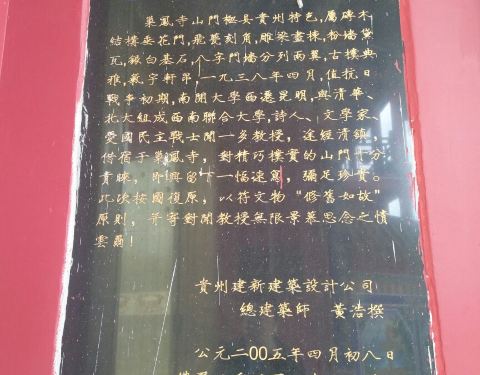 巢鳳寺山門極具貴州特色，屬磚木
結構垂花門，飛甍刻角，雕梁畫棟，粉墻黛
瓦，銀白基石，八字門墻分列兩翼，古樸典
雅，氣宇軒昂，一九三八年四月，值抗日
戰爭初期，南開大學西遷昆明，與清華、
北大組成西南聯合大學，詩人、文學家、
愛國民主戰士聞一多教授，途經清鎮，
借宿于巢鳳寺，對精巧樸實的山門十分
青睞，即興留下一幅速寫，彌足珍貴。
此次按圖復原，以符文物“修舊如故”
原則，并寄對聞教授無限景慕思念之情
雲爾！
貴州建新建築設計公司
總建築師 黃浩撰
公元二00五年四月初八日